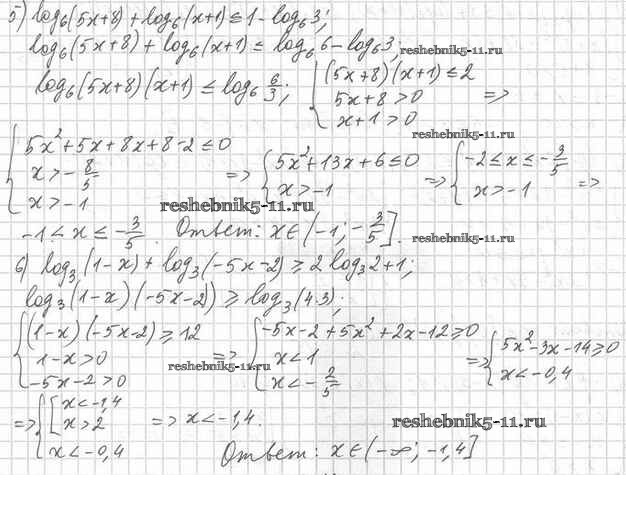 5) log₆(5x+8) + log₆(x+1) ≤ 1 - log₆3;
log₆(5x+8) + log₆(x+1) ≤ log₆6 - log₆3; reshebnik5-11.ru
log₆(5x+8)(x+1) ≤ log₆ 6/3; { (5x+8)(x+1) ≤ 2
5x+8 > 0 =>
x+1 > 0
reshebnik5-11.ru
{ 5x²+5x+8x+8-2 ≤ 0
x > -8/5
x > -1
=> { 5x²+13x+6 ≤ 0
x > -1
=> { -2 ≤ x ≤ -3/5
x > -1 =>
reshebnik5-11.ru
-1 < x ≤ -3/5. Ответ: x∈(-1; -3/5]. reshebnik5-11.ru
6) log₃(1-x) + log₃(-5x-2) ≥ 2log₃2+1;
log₃(1-x)(-5x-2)) ≥ log₃(4·3);
{ (1-x)(-5x-2) ≥ 12
1-x > 0
-5x-2 > 0
reshebnik5-11.ru
=> { -5x-2+5x²+2x-12 ≥ 0
x < 1
x < -2/5
=> { 5x²-3x-14 ≥ 0
x < -0,4
=> { [ x < -1,4
x > 2
x < -0,4
=> x < -1,4.
reshebnik5-11.ru
Ответ: x∈(-∞; -1,4]